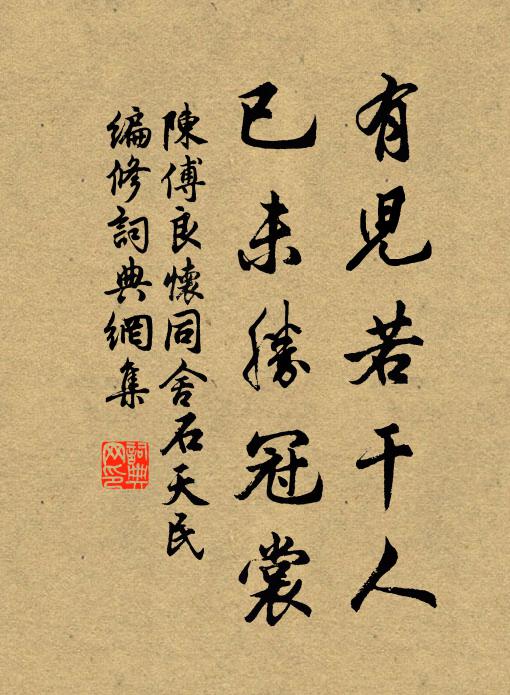 有兒若干人
已未勝冠裳
陳傅良懷同舍石天民
編修詞典網集
詞典
网印